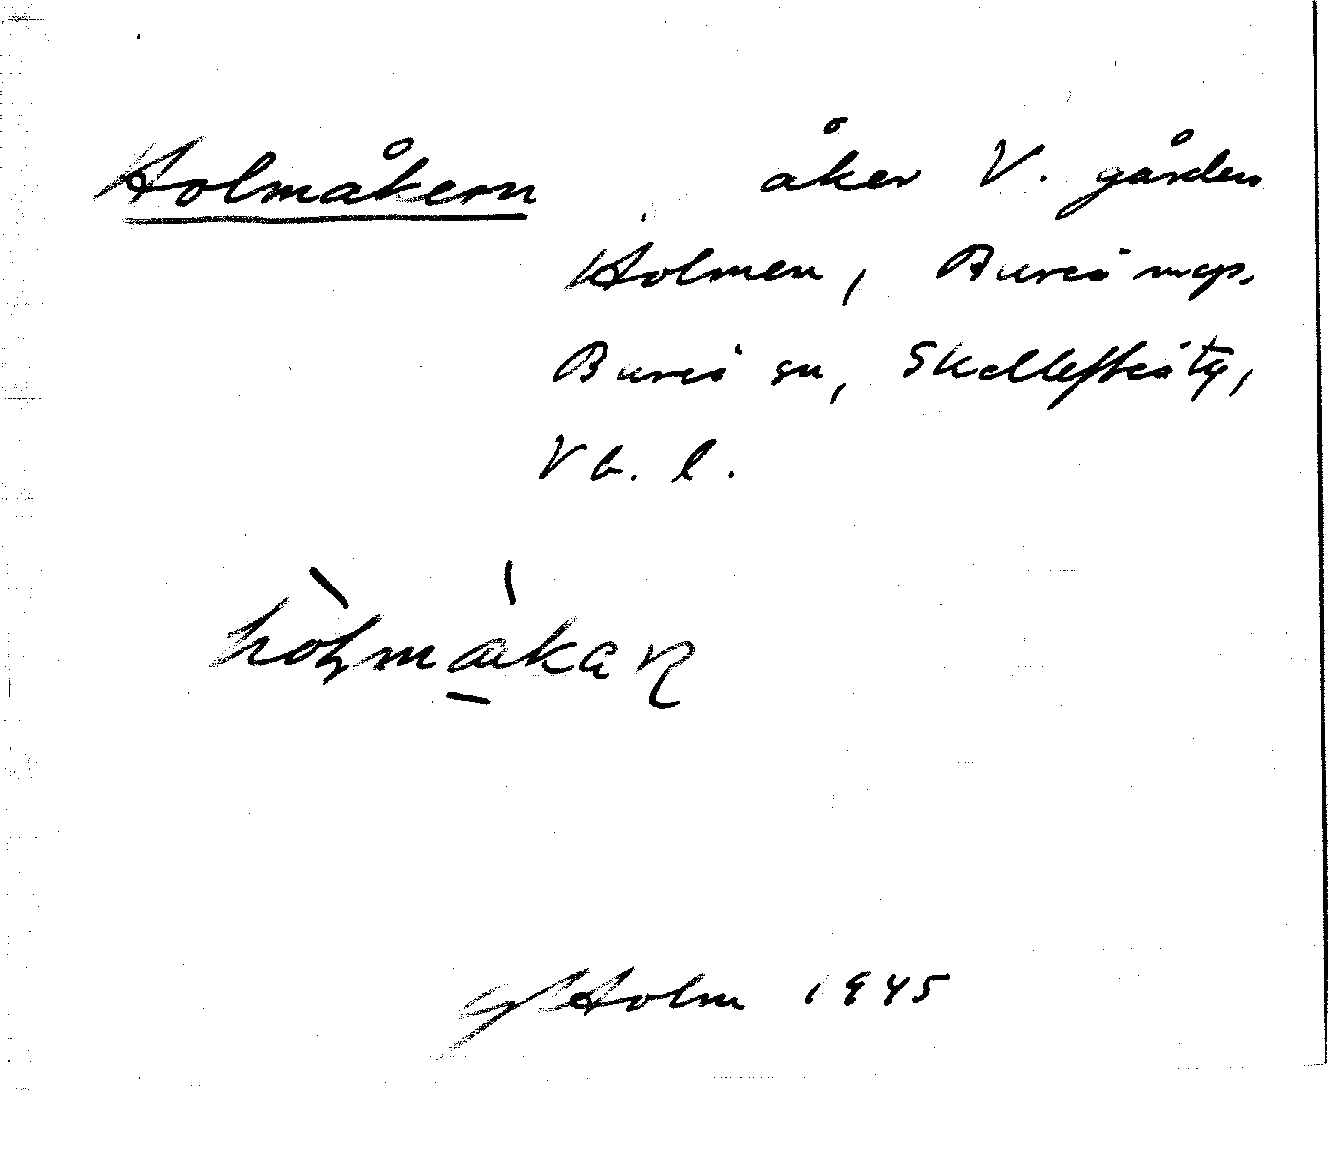 Holmåkern åker V. gården
Holmen, Bureå mcp.
Bureå sn, Skellefteå tg,
Vb. l.
hòḷmàkaɳ
G Holm 1945